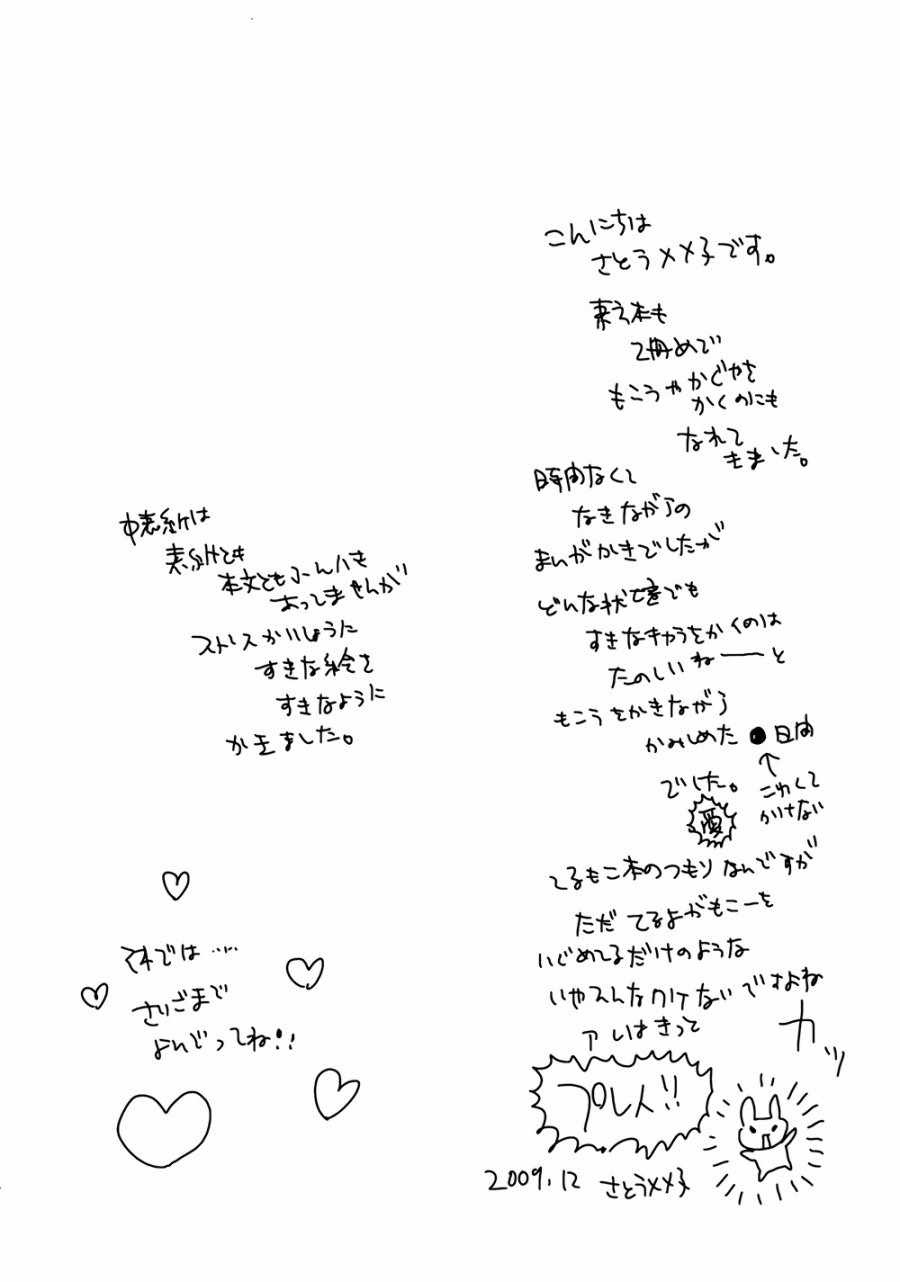 こんにちは
さとうメメ子です。
東方本も
2冊めで
もこうやかぐやを
かくのにも
なれて
きました。
時間なくて
なきながらの
まんがかきでしたが
どんな状態でも
すきなキャラをかくのは
たのしいねーーと
もこうをかきながら
かみしめた●日間
でした。
↑
こわくて
かけない
てるもこ本のつもりなんですが
ただ てるよがもこーを
いじめてるだけのような
いやそんなワケないですよね
アレはきって
プレイ!!
カッ
2009.12 さとうメメ子
中表紙は
表紙とも
本文ともふんいき
あってませんが
ストレスかいしょうに
すきな絵を
すきなように
かきました。
それでは……
さいごまで
よんでってね!!